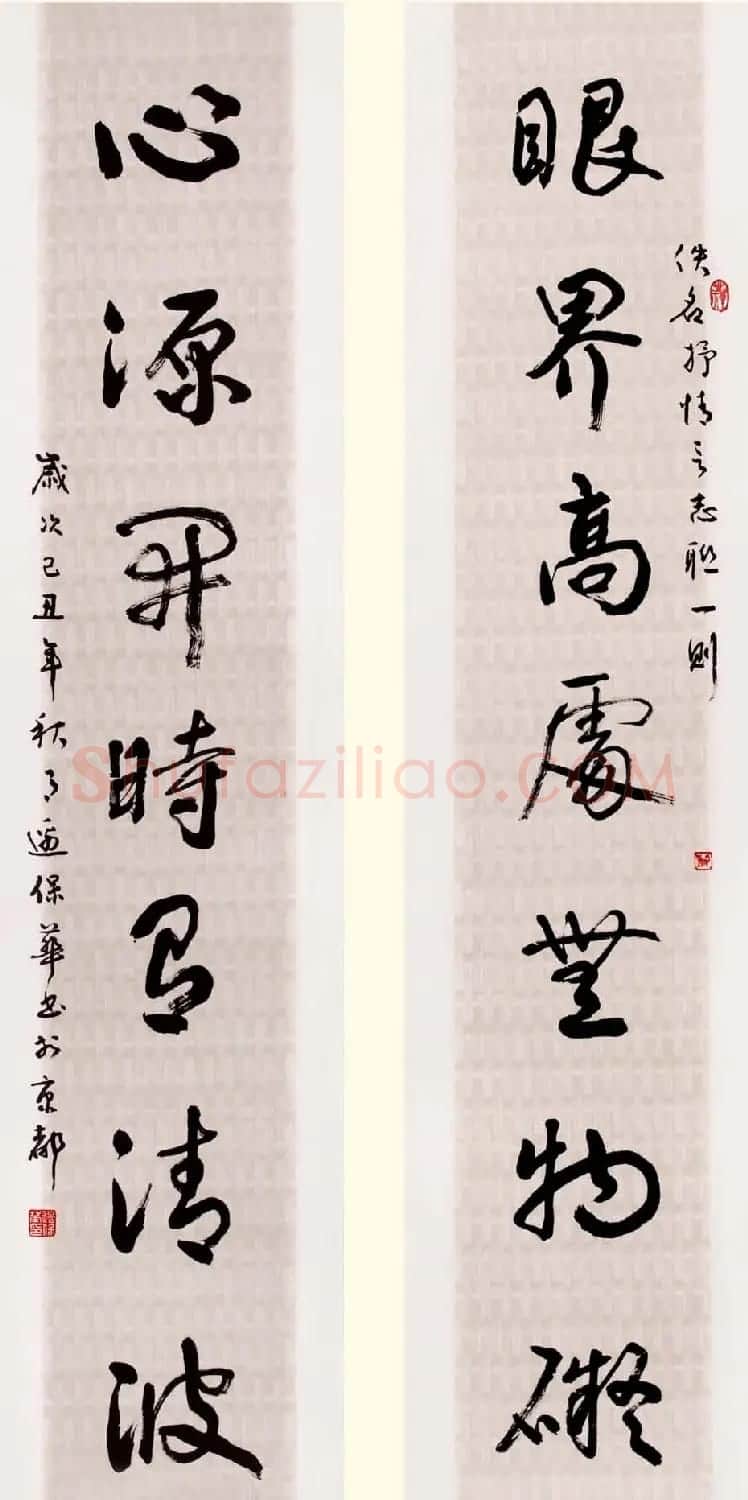 眼界高處無物礙
佚名抒情言志聯一則
心源開時有清波
歲次己丑年秋月逯保華書於京都
Shufaziliao.COM